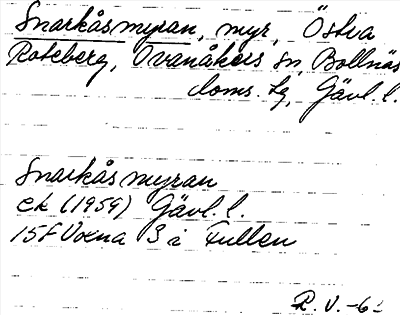 Snarkåsmyran, myr, Östra
Roteberg, Ovanåkers sn, Bollnäs
doms. lg, Gävl. l.
Snarkåsmyran
ek (1959) Gävl. l.
15F Voxna 3 i Fullen
R. V. -6